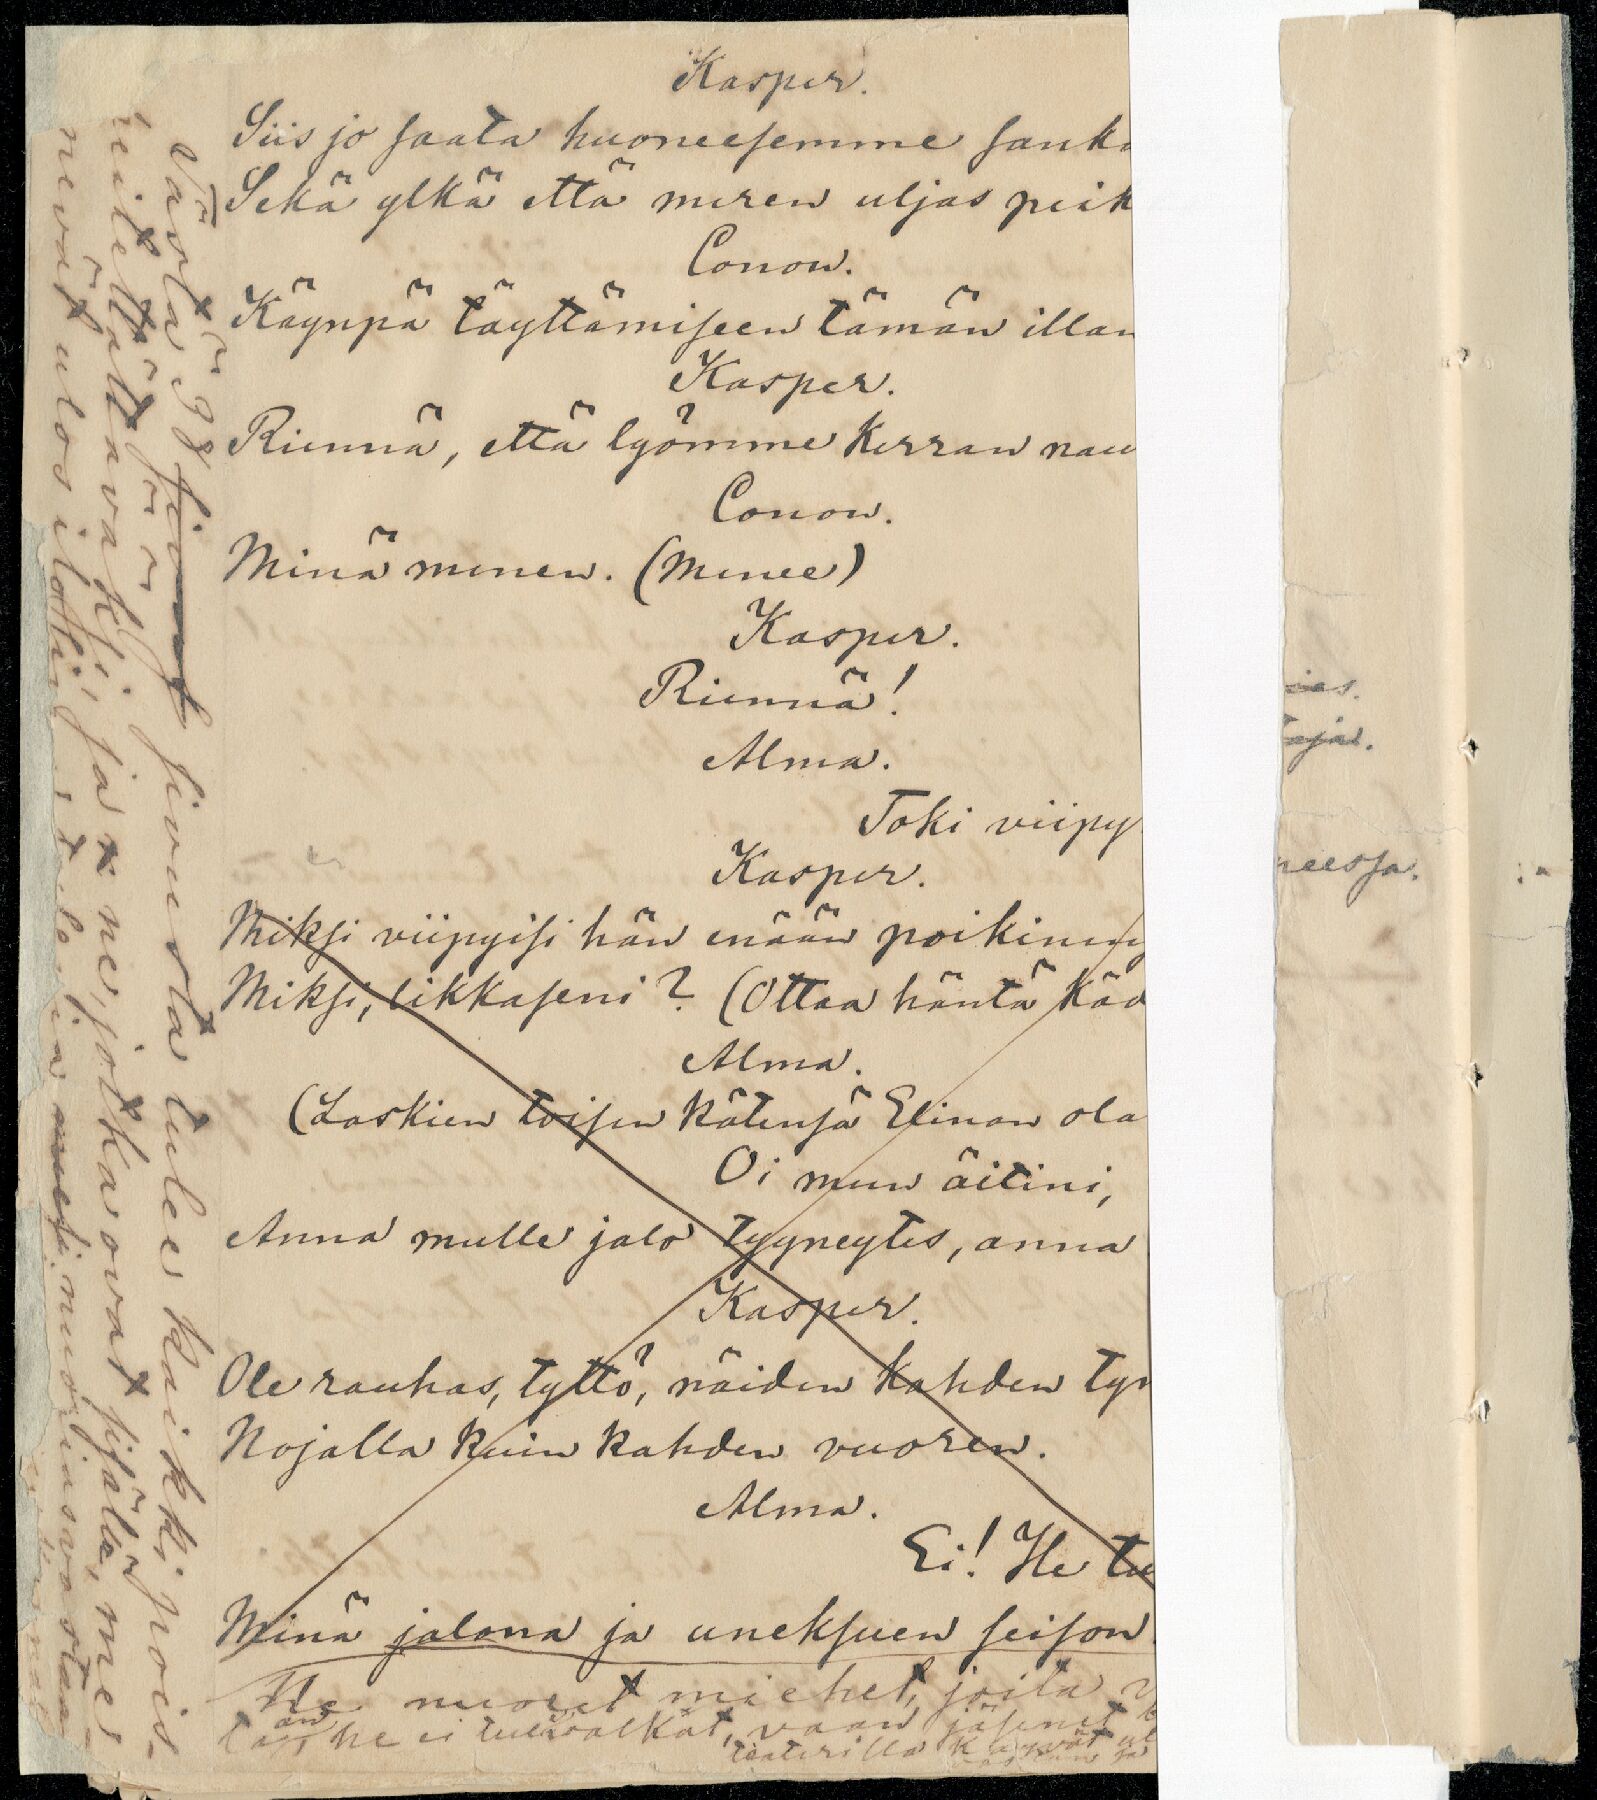 Kasper.
Siis jo saata huoneesemme sanka
Sekä ylkä että meren uljas peik
Conon.
Käynpä täyttämiseen tämän illan
Kasper.
Riennä, että lyömme kerran nau
Conon.
Minä menen. (Menee)
Kasper.
Riennä!
Alma.
Toki viipy
Kasper.
Miksi viipyisi hän enään poikinen
Miksi, likkaseni? (Ottaa häntä käd
Alma.
(Laskien toisen kätensä Elinan ola
Oi mun äitini,
Anna mulle jalo tyyneytes, anna
Kasper.
Ole rauhas, tyttö, näiden kahden tyr
Nojalla kuin kahden vuoren.
Alma.
Ei! He tu
Minä jalona ja uneksuen seison
Ne nuoret miehet, joita
he ei tule valkät, vaan jäsenet
teaterilla käyvät
Västä 98 sivut sivusta tulee kaikki pois-
jätettäväksi, ja ne, jotka ovat sisällä, me-
nevät ulos
ies.
neessa.